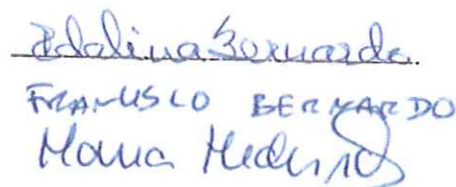 Idalina Bernardo
FRANCISCO BERNARDO
Maria Medeiros